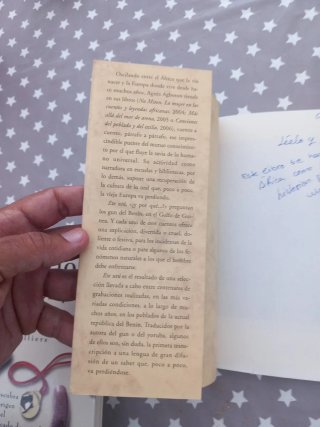 Oscilando entre el África que la vio
nacer y la Europa donde vive desde ha-
ce muchos años, Agnès Agboton tiende
en sus libros (Na Mitón. La mujer en los
cuentos y leyendas africanas, 2004; Más
allá del mar de arena, 2005 o Canciones
del poblado y del exilio, 2006), cuento a
cuento, párrafo a párrafo, ese impres-
cindible puente del mutuo conocimien-
to por el que fluye la savia de lo huma-
no universal. Su actividad como
narradora en escuelas y bibliotecas, por
lo demás, supone una recuperación de
la cultura de lo oral que, poco a poco,
la vieja Europa va perdiendo.
Eté utú, ¿y por qué...? preguntan
los gun del Benín, en el Golfo de Gui-
nea. Y cada uno de esos cuentos ofrece
una explicación, divertida o cruel, do-
liente o festiva, para los incidentes de la
vida cotidiana o para algunos de los fe-
nómenos naturales a los que el hombre
debe enfrentarse.
Eté utú es el resultado de una selec-
ción llevada a cabo entre centenares de
grabaciones realizadas, en las más va-
riadas condiciones, a lo largo de mu-
chos años, en los poblados de la actual
república del Benín. Traducidos por la
autora del gun o del yoruba, algunos
de ellos son, sin duda, la primera trans-
cripción a una lengua de gran difu-
sión de un saber que, poco a poco,
va perdiéndose.
este libro te
África como